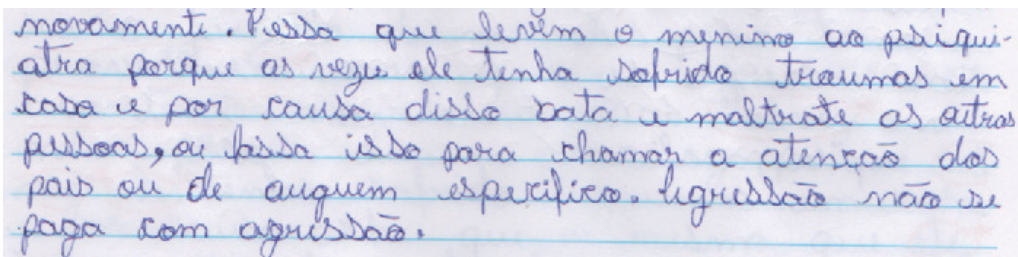 novamente. Pessa que levem o menino ao psiqui-
atra porque as vezes ele tenha sofrido traumas em
casa e por causa disso bata e maltrate as outras
pessoas, ou fassa isso para chamar a atenção dos
pais ou de auguem especifico. Agressão não se
paga com agressão.